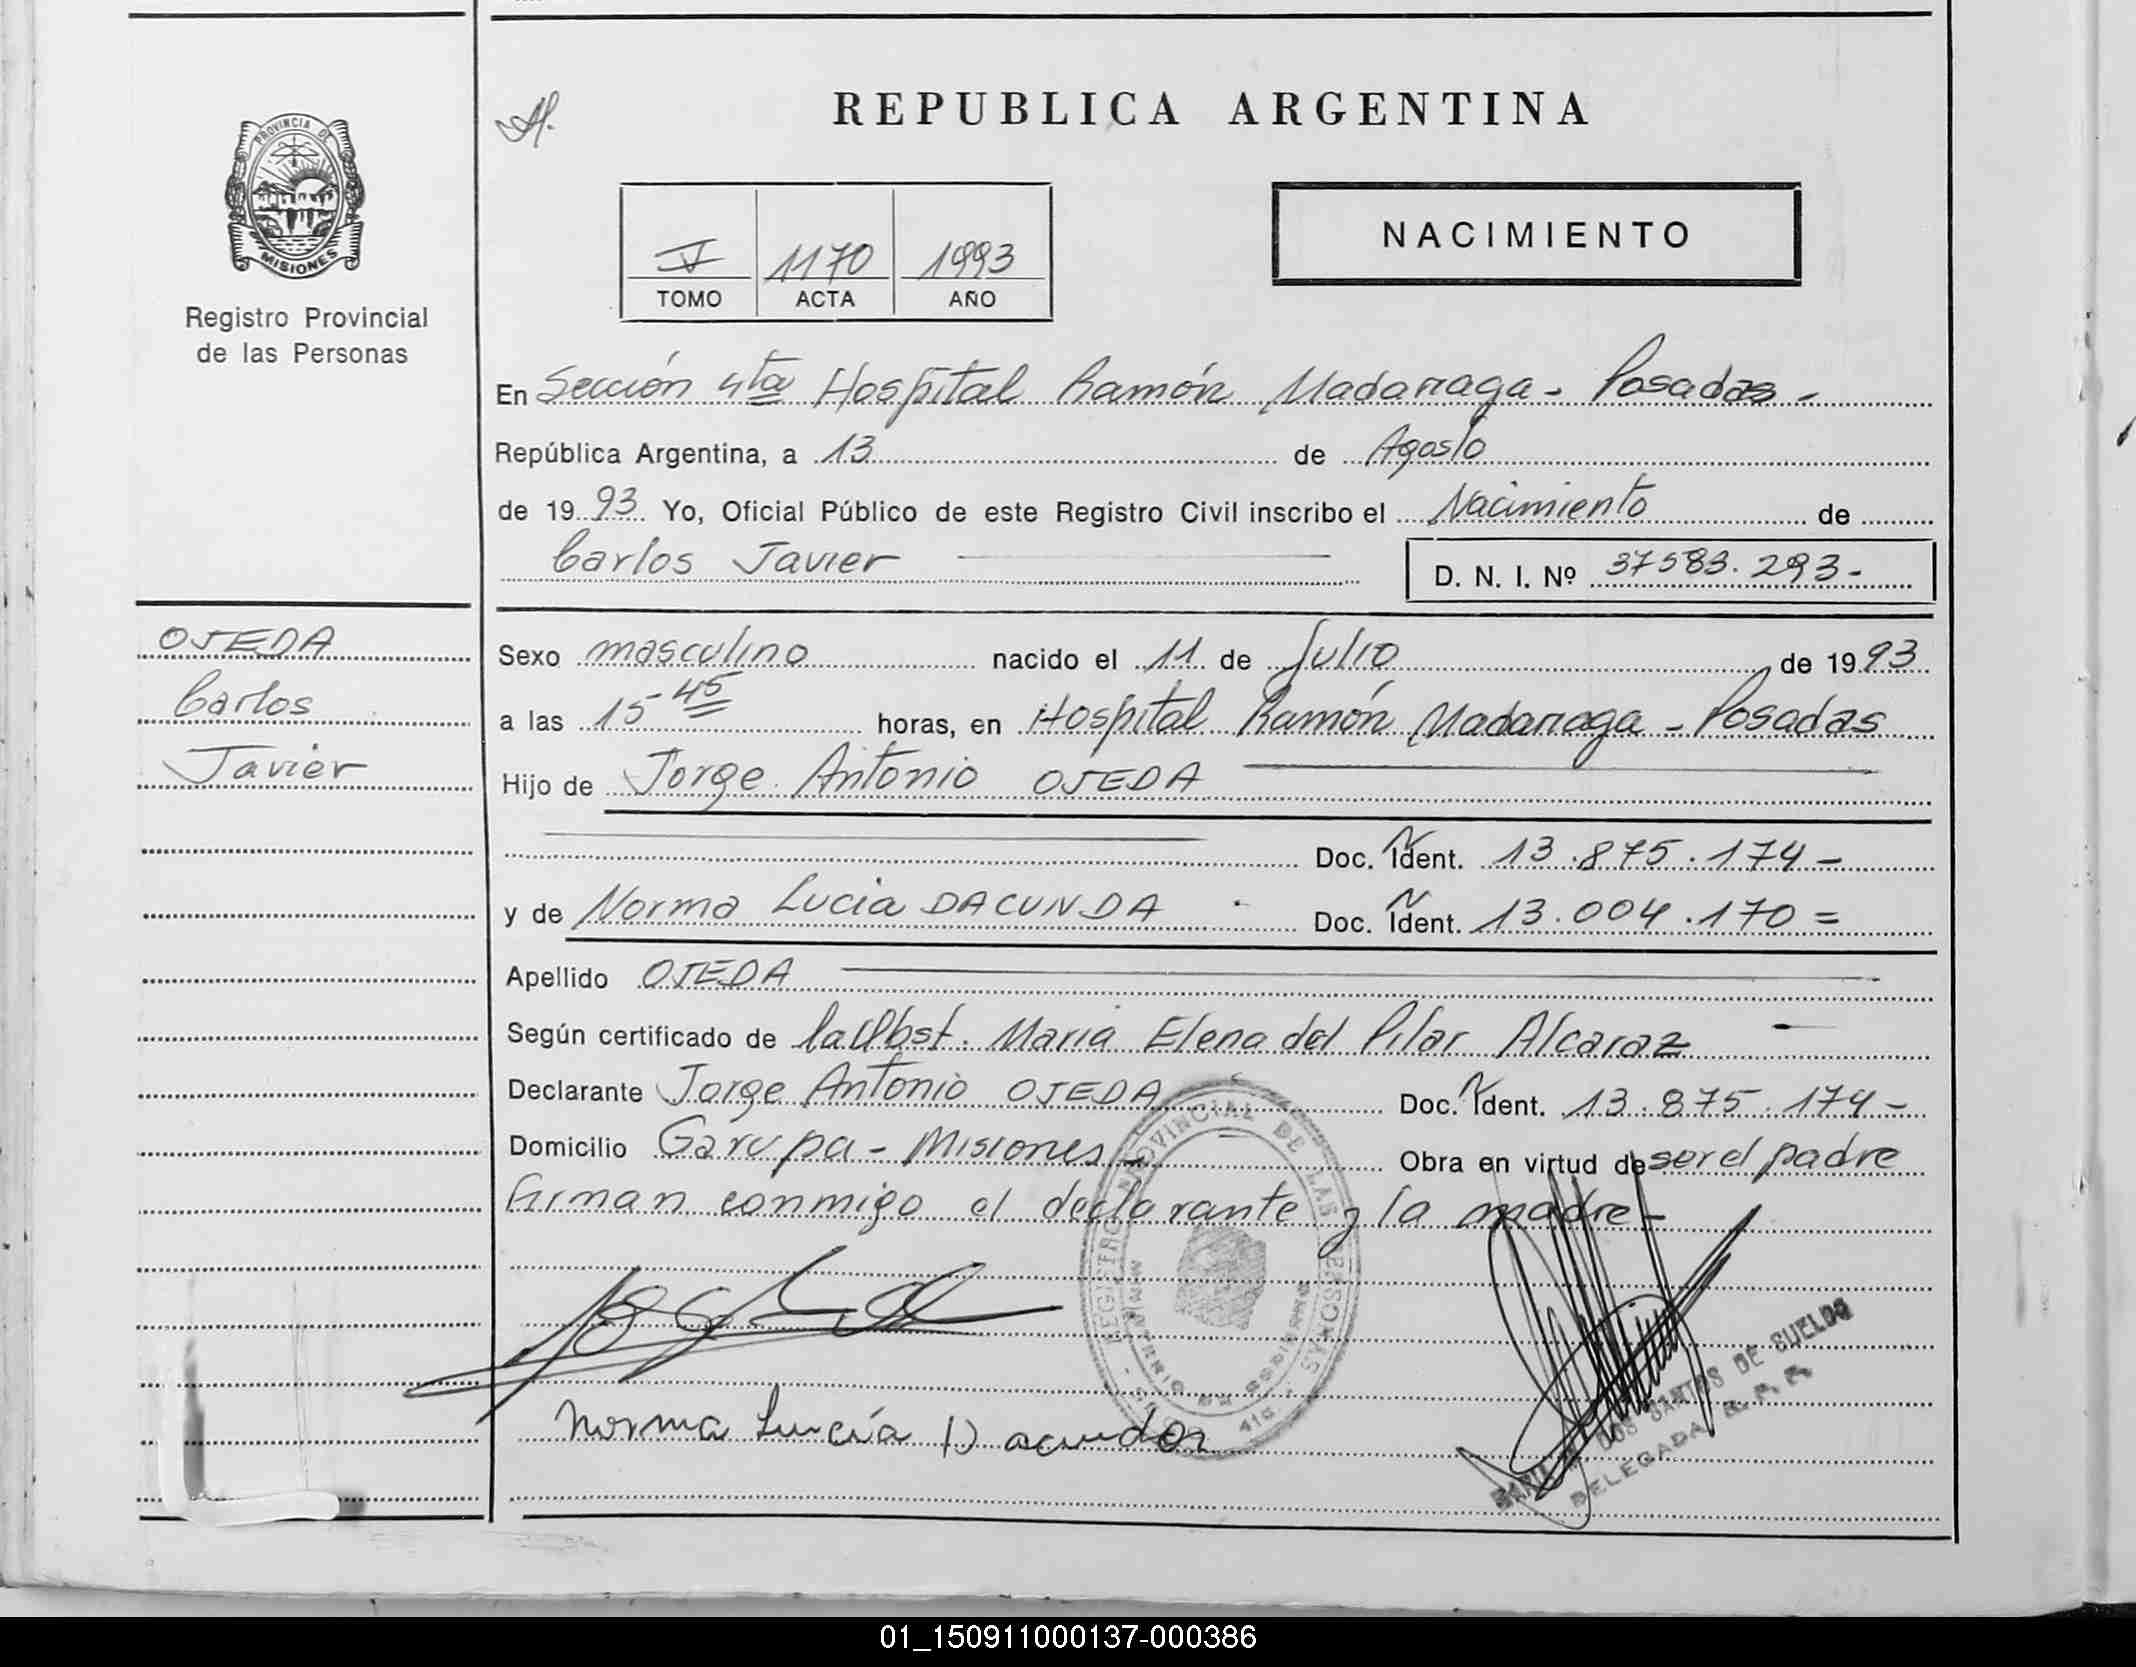 REPUBLICA ARGENTINA
PROVINCIA DE
MISIONES
Registro Provincial
de las Personas
V 1170 1993
TOMO ACTA AÑO
NACIMIENTO
En Sección 4ta Hospital Ramón Madariaga - Posadas -
República Argentina, a 13 de Agosto
de 1993 Yo, Oficial Público de este Registro Civil inscribo el Nacimiento de
Carlos Javier D. N. I. Nº 37583.293-
OJEDA
Carlos
Javier
Sexo masculino nacido el 11 de Julio de 1993
a las 15 45 horas, en Hospital Ramón Madariaga - Posadas
Hijo de Jorge Antonio OJEDA
Doc. Ñ Ident. 13.875.174-
y de Norma Lucia DACUNDA Doc. Ñ Ident. 13.004.170=
Apellido OJEDA
Según certificado de la Obst. Maria Elena del Pilar Alcaraz
Declarante Jorge Antonio OJEDA Doc. Ñ Ident. 13.875.174-
Domicilio Garupa - Misiones - Obra en virtud de ser el padre
Firman conmigo el declarante y la madre -
REGISTRO PROVINCIAL DE LAS PERSONAS
MINISTERIO DE GOBIERNO
Norma Lucía Dacunda
DOS SANTOS DE SUELDO
DELEGADA R. P. P.
01_150911000137-000386